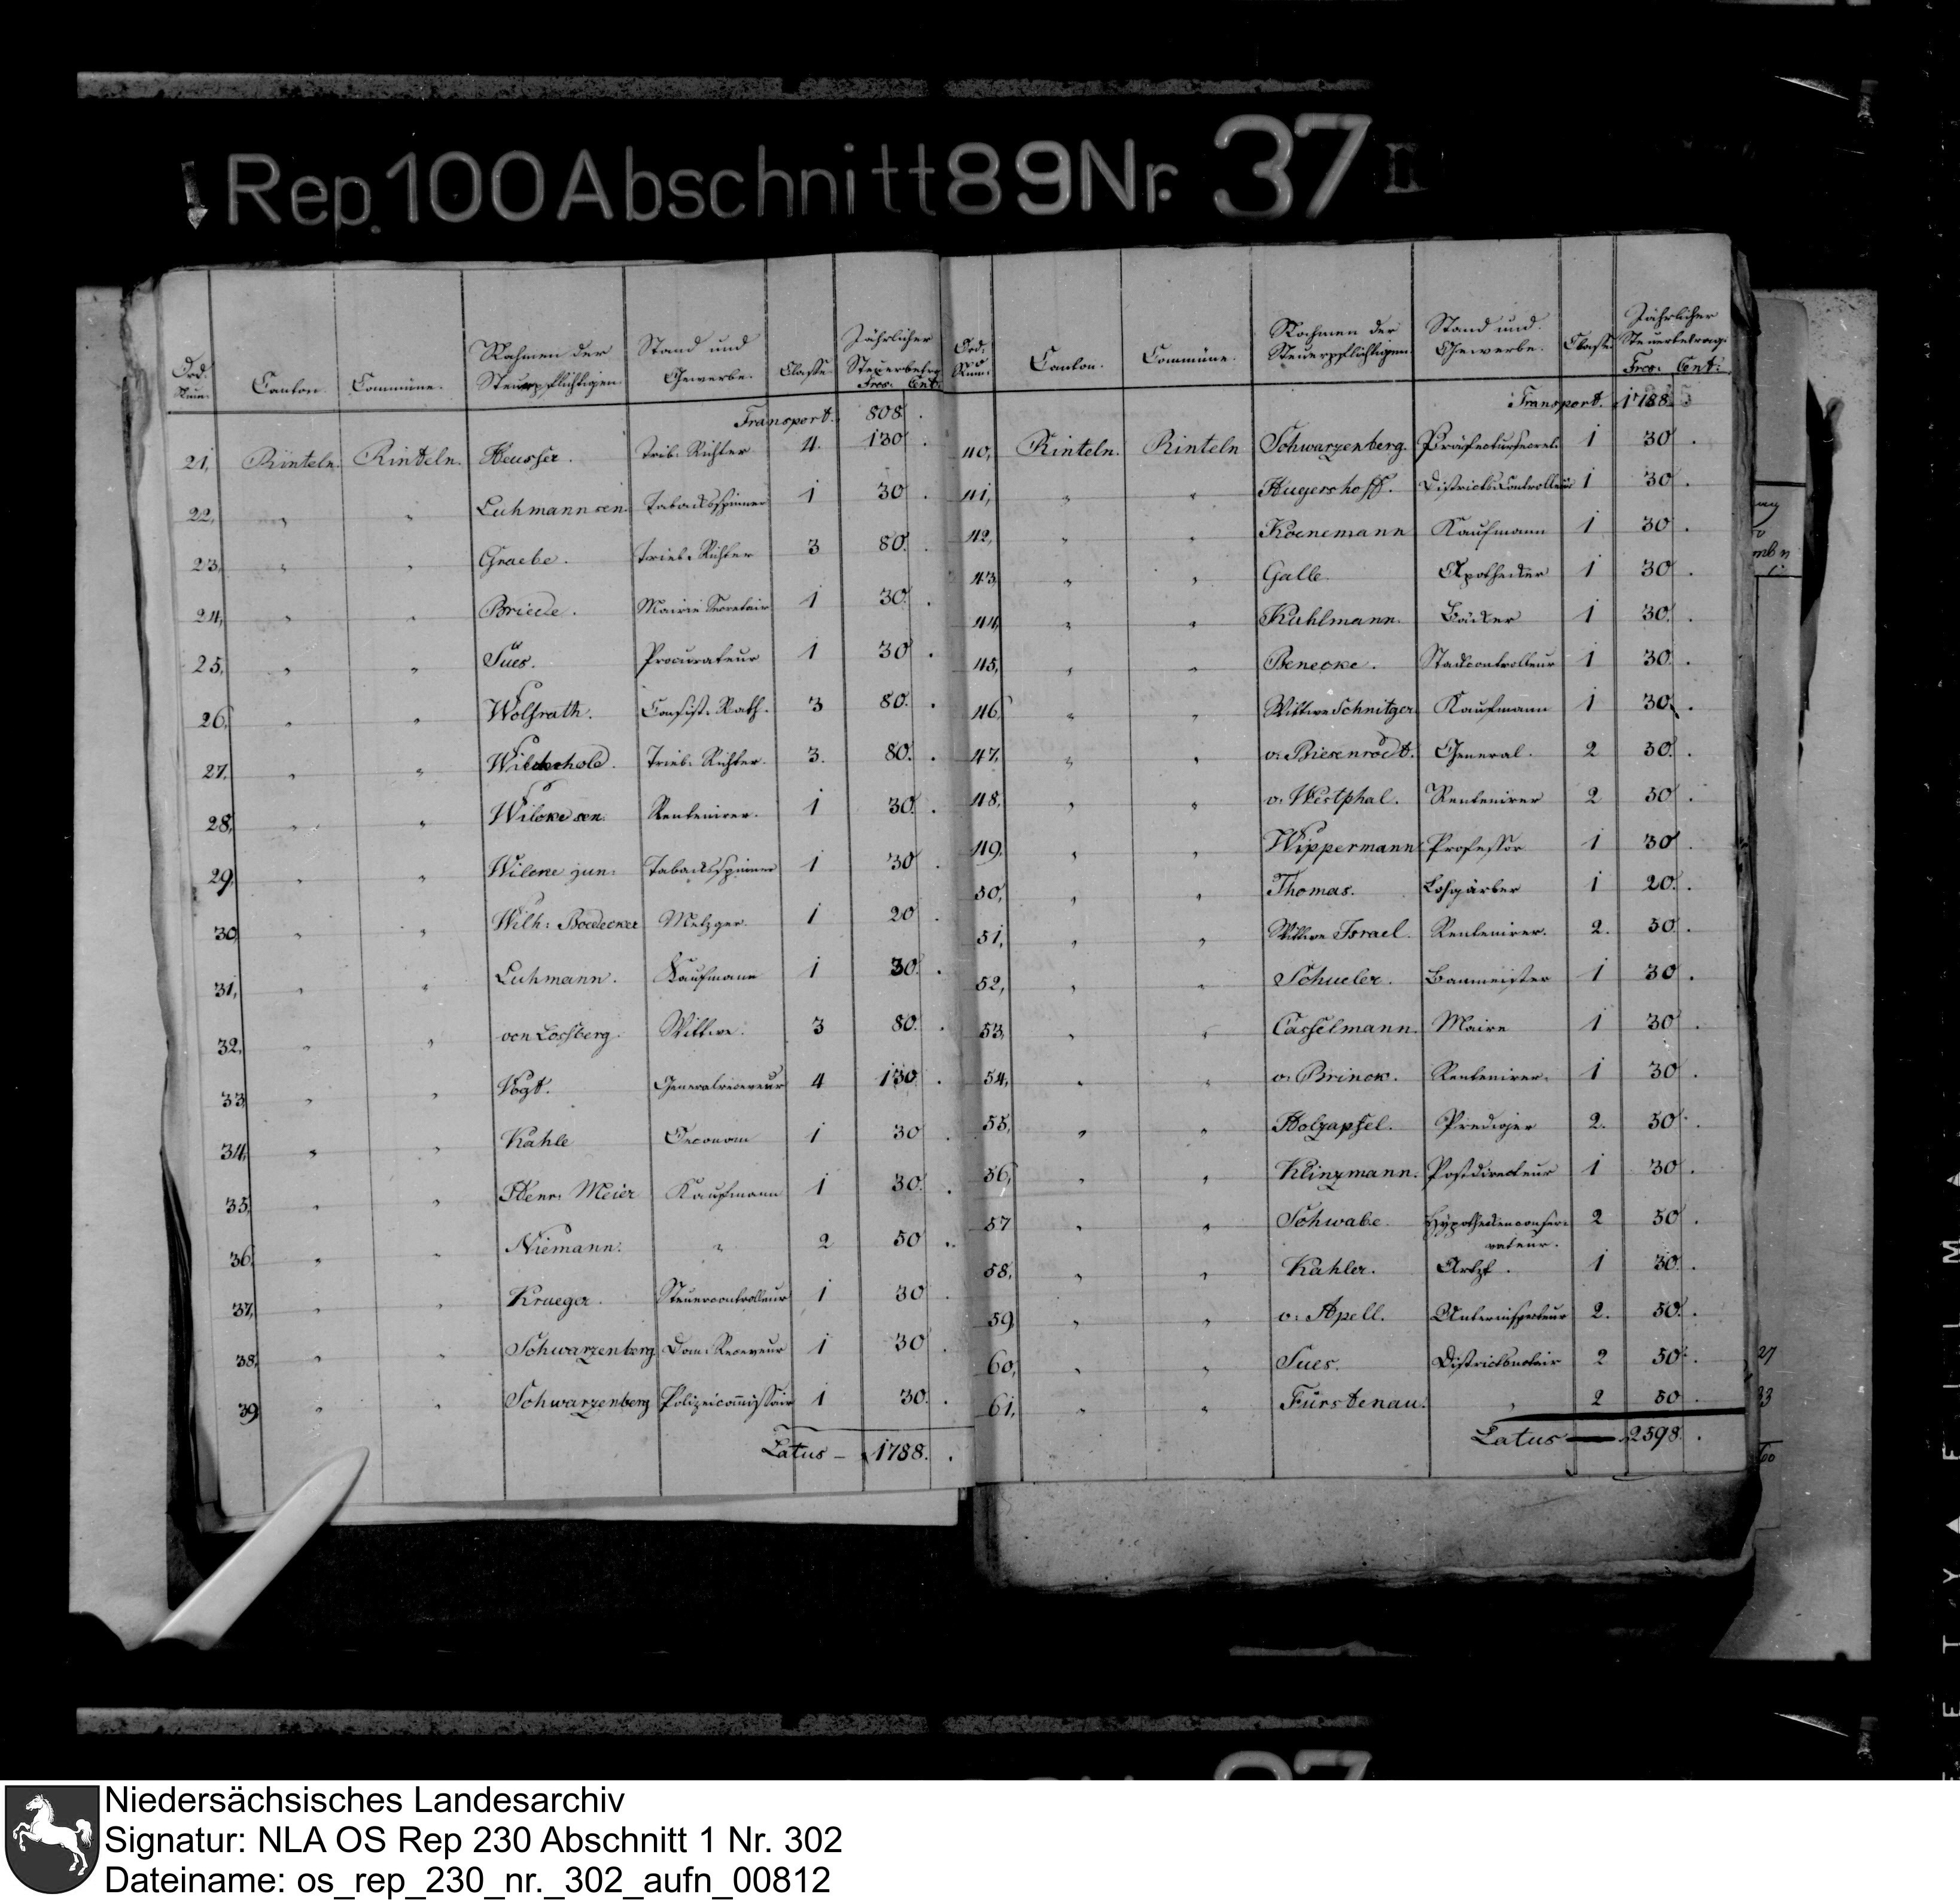 Rep. 100 Abschnitt 89 Nr. 37 II
Ord. Num. Canton. Commüne. Nahmen der Steuerpflichtigen Stand und Gewerbe. Classe Jährlicher Steuerbetrag Frcs: Cent:
Transport. 808.
21, Rinteln. Rinteln. Heusser. Trib: Richter 4. 130.
22, " " Luhmann sen. Tabackspinner 1 30.
23, " " Graebe. Trib: Richter 3 80.
24, " " Briede. Mairie Secretair 1 30.
25, " " Sues. Procurateur 1 30.
26, " " Wolfrath. Consist: Rath. 3 80.
27, " " Wiederhold. Trib: Richter. 3. 80.
28, " " Wilcke sen. Rentenirer. 1 30.
29, " " Wilcke jun: Tabackspinner 1 30.
30, " " Wilh: Boedecker Metzger. 1 20.
31, " " Luhmann. Kaufmann 1 30.
32, " " von Lossberg. Wittwe. 3 80.
33, " " Vogt. Generalreceveur 4 130.
34, " " Kahle Oeconom 1 30.
35, " " Henr: Meier Kaufmann 1 30.
36, " " Niemann. " 2 50.
37, " " Krueger. Steuercontrolleur 1 30.
38, " " Schwarzenberg Dom: Receveur 1 30.
39, " " Schwarzenberg Polizeicom̅issair 1 30.
Latus – 1788.
Ord: Num: Canton. Commüne. Nahmen der Steuerpflichtigen Stand und Gewerbe. Classe Jährlicher Steuerbetrag: Frcs: Cent:
Transport. 1788.
40, Rinteln. Rinteln Schwarzenberg. Präfectursecret. 1 30.
41, " " Hugershoff. Districtscontrolleur 1 30.
42, " " Koenemann Kaufmann 1 30.
43, " " Galle. Apothecker 1 30.
44, " " Kuhlmann. Bäcker 1 30.
45, " " Benecke. Stadtcontrolleur 1 30.
46, " " Wittwe Schnitger Kaufmann 1 30.
47, " " v: Biesenrodt. General. 2 50.
48, " " v: Westphal. Rentenirer 2 50.
49, " " Wippermann Professor 1 30.
50, " " Thomas. Lohgärber 1 20.
51, " " Wittwe Israel. Rentenirer. 2. 50.
52, " " Schueler. Baumeister 1 30.
53, " " Casselmann. Maire 1 30.
54, " " v: Brinck. Rentenirer. 1 30.
55, " " Holzapfel. Prediger 2. 50.
56, " " Klinzmann. Postdirecteur 1 30.
57 " " Schwabe. Hypotheckenconser- 2 50.
vateur.
58, " " Kahler. Artzt. 1 30.
59, " " v: Apell. Unterinspecteur 2. 50.
60, " " Sues. Districtsnotair 2 50.
61, " " Fürstenau. " 2 50.
Latus — 2598.
27
33
60
Niedersächsisches Landesarchiv
Signatur: NLA OS Rep 230 Abschnitt 1 Nr. 302
Dateiname: os_rep_230_nr._302_aufn_00812